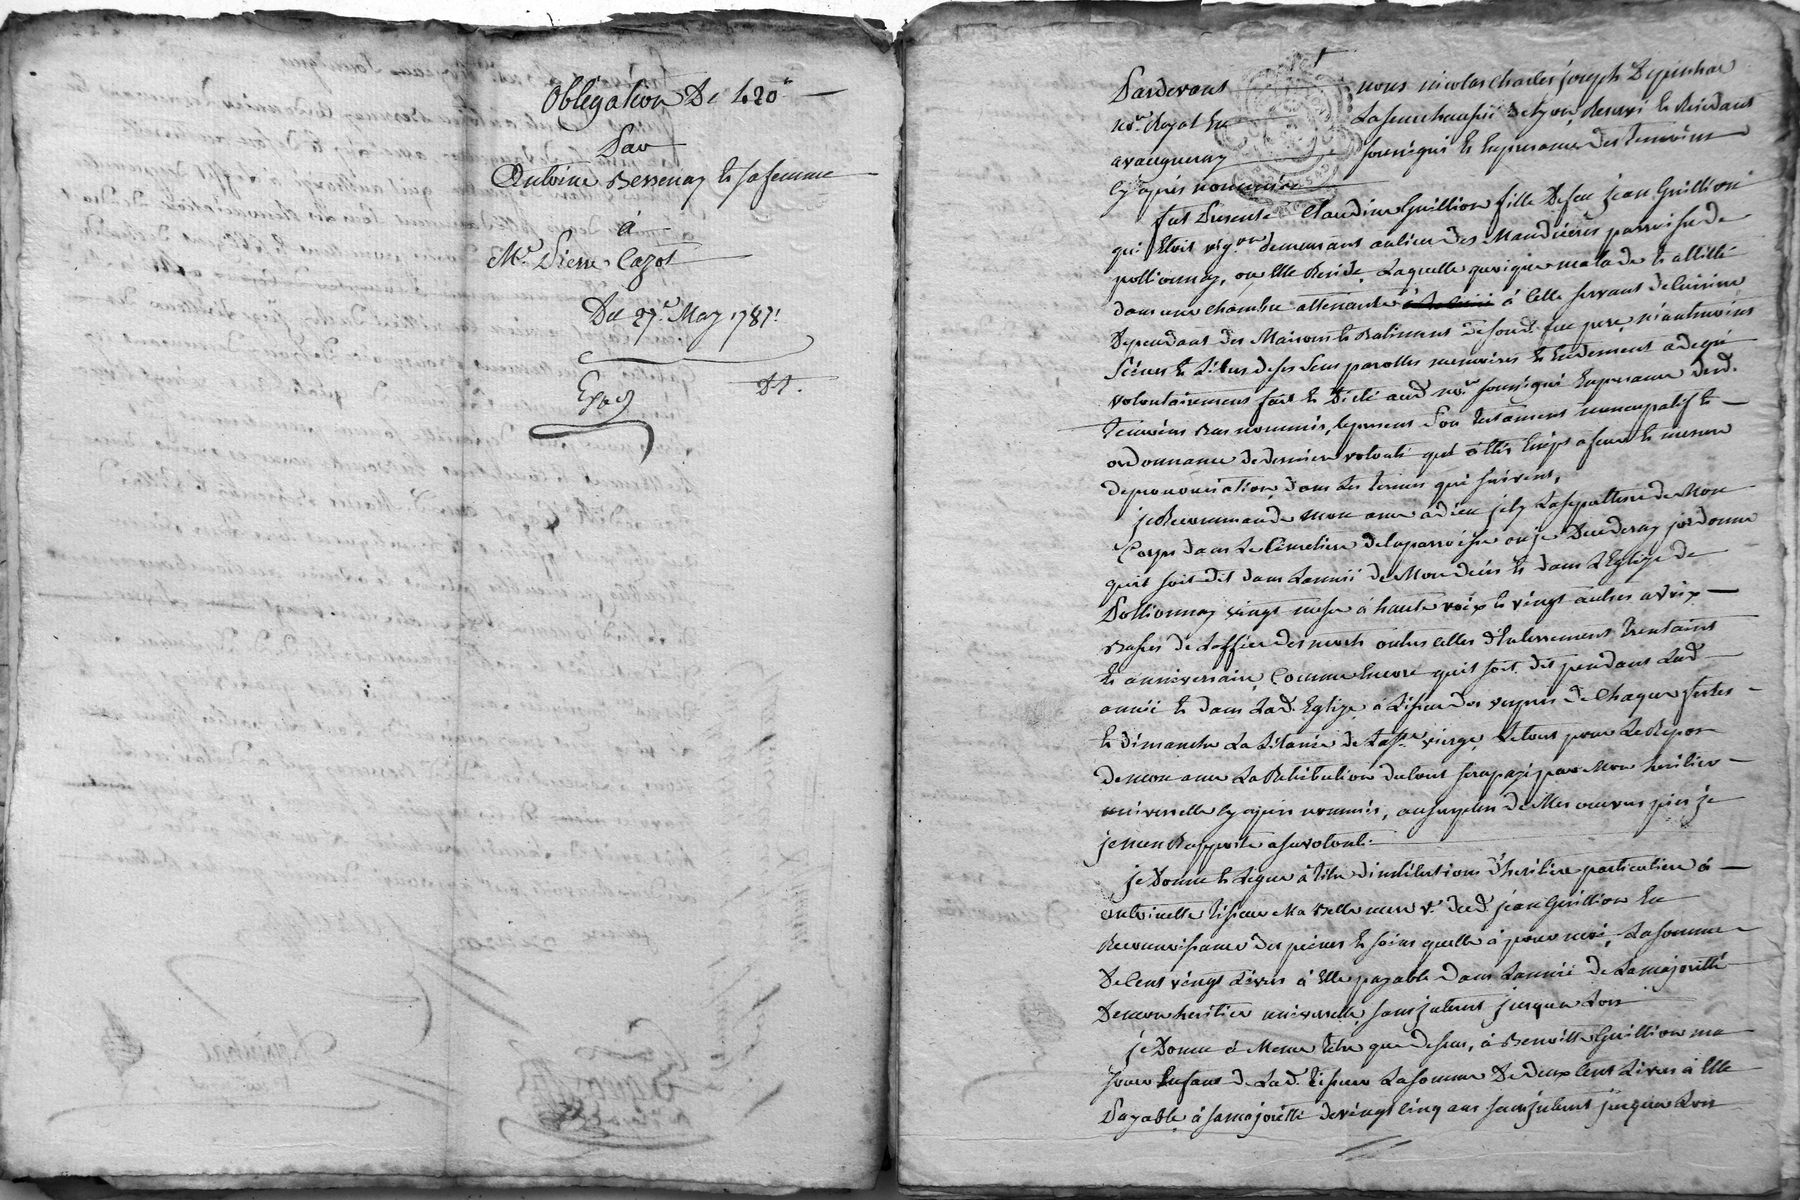 Obligation De 420ᵗᵗ
Par
Antoine Bessenay et sa femme
à
Mr. Pierre Cazot
Du 27e. May 1781.
Expé
Pardevant nous nicolas Charles joseph
nore. Royal En La senechaussée de Lyon, Reservé et Residant
a vaugneray soussigné Et En presance des Temoins
Cy après nommés
fut Presente Claudine Guillion fille De feu jean Guillion
qui Etoit vigon. demeurant au lieu des Mandieres parroisse de
pollionnay, ou Elle Reside, Laquelle quoique malade et allitée
dans une chambre attenante à Celle servant de Cuisine
Dependant des Maisons et Batiments de son d. feu pere, néantmoins
Séine et Libre de ses sens parolles memoires et Entendement a de gré
volontairement fait et Dicté aud. nore. soussigné En presance desd.
Temoins Bas nommés, le present Son testament nuncupatif et
ordonnance de derniere volonté qu'il à Ecrit a fur et mesure
de prononciation, dans Les termes qui suivent,
je Recommande mon ame à dieu, j'ely La sepulture de Mon
Corps dans Le Cimetiere de la parroisse ou je Decederay j'ordonne
qu'il soit dit dans L'année de Mon decès et dans L'Eglize de
Pollionnay vingt messe à haute voix et vingt autres a voix
Basses de L'office des morts outres Celles d'Enterrement trentaint
et anniversaire, Comme Encore qu'il soit dit pendant Lad.
année et dans Lad. Eglize, à L'issue des vespres de Chaque festes
et dimanche La Litanie de La Ste. vierge, Le tout pour Le Repos
de mon ame La Retribution du tout sera payé par Mon heritier
universelle Cy après nommés, au surplus de Mes œuvres pies je
je m'en Rapporte a sa volonté.
je Donne et Legue à titre d'institutions d'heritiere particuliere à
antoinette Tisseur Ma Belle mere ve. dud. jean Guillion En
Reconnoissance des peines et soins qu'elle à pour moi, La somme
De Cent vingt Livres à Elle payable dans L'année de La majorité
De mon heritier universelle, sans interest jusqu'a Lors
je Donne à Meme titre que dessus, à Benoitte Guillion ma
sœur Enfant de Lad. Tisseur La somme De deux Cent Livres à Elle
Payable, à sa majorité de vingt Cinq ans sans interest jusqu'a Lors